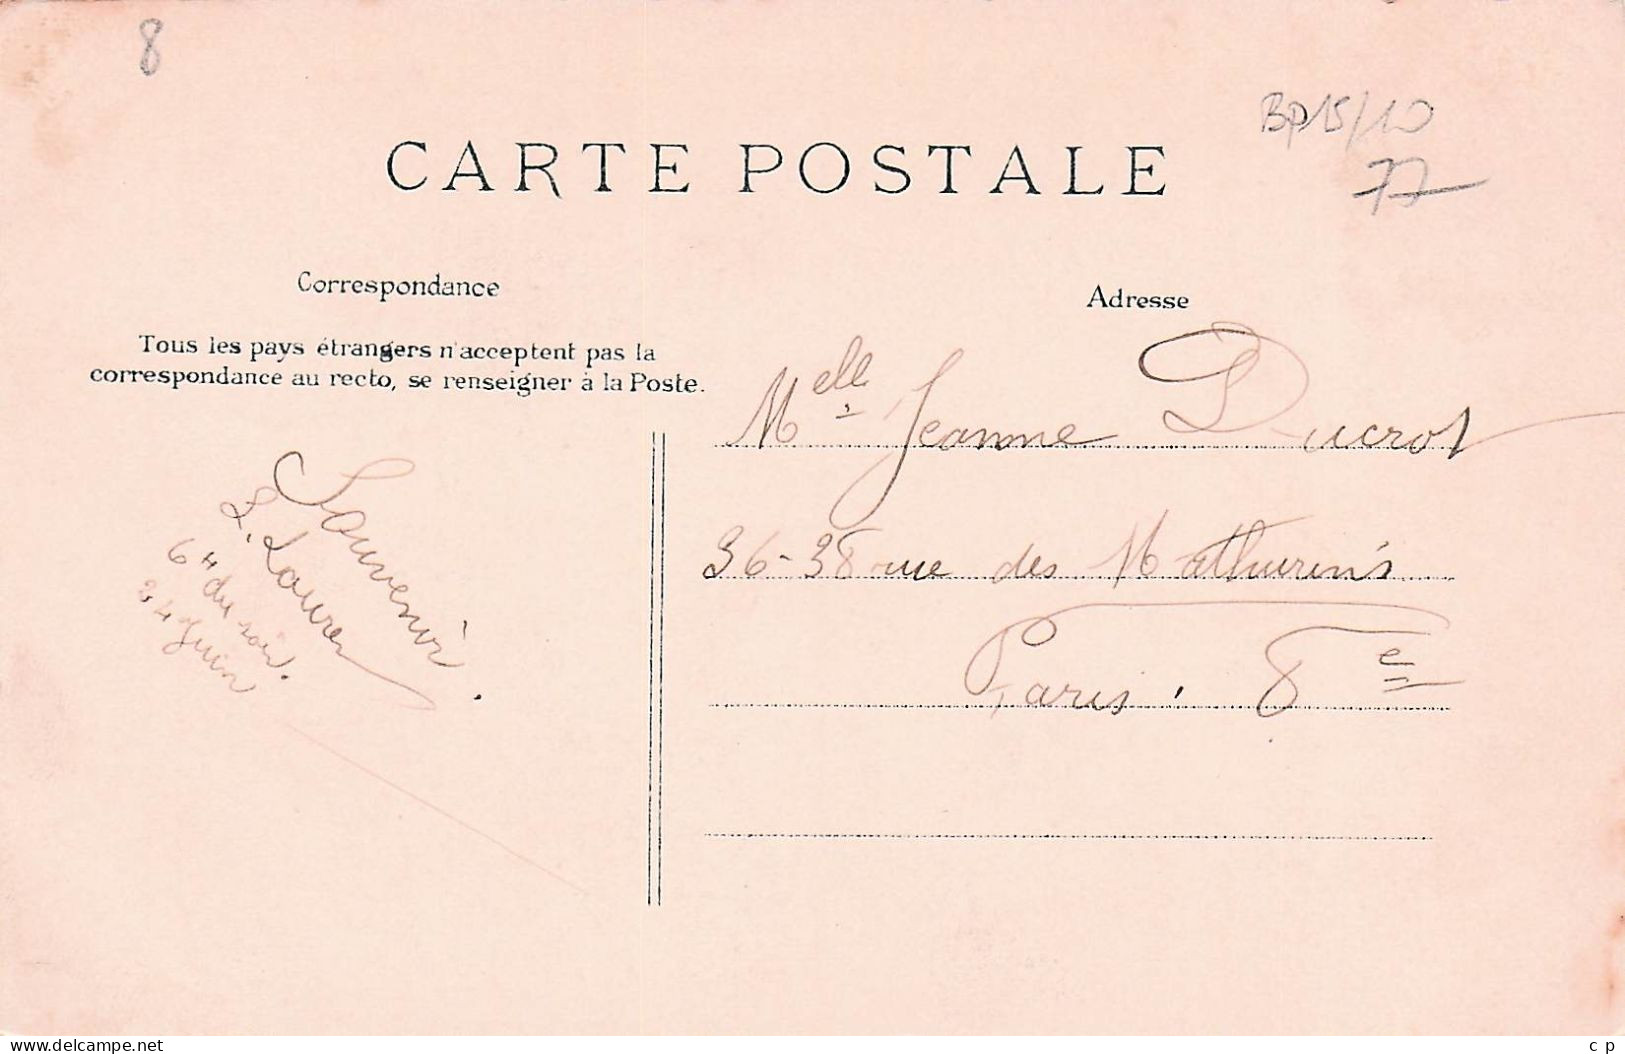 8
BP15/10
77
CARTE POSTALE
Correspondance
Tous les pays étrangers n'acceptent pas la
correspondance au recto, se renseigner à la Poste.
Souvenir.
L.
6 h du soir.
24 Juin
Adresse
Melle Jeanne Ducrot
36-38 rue des Mathurins
Paris. 8e
www.delcampe.net
cp